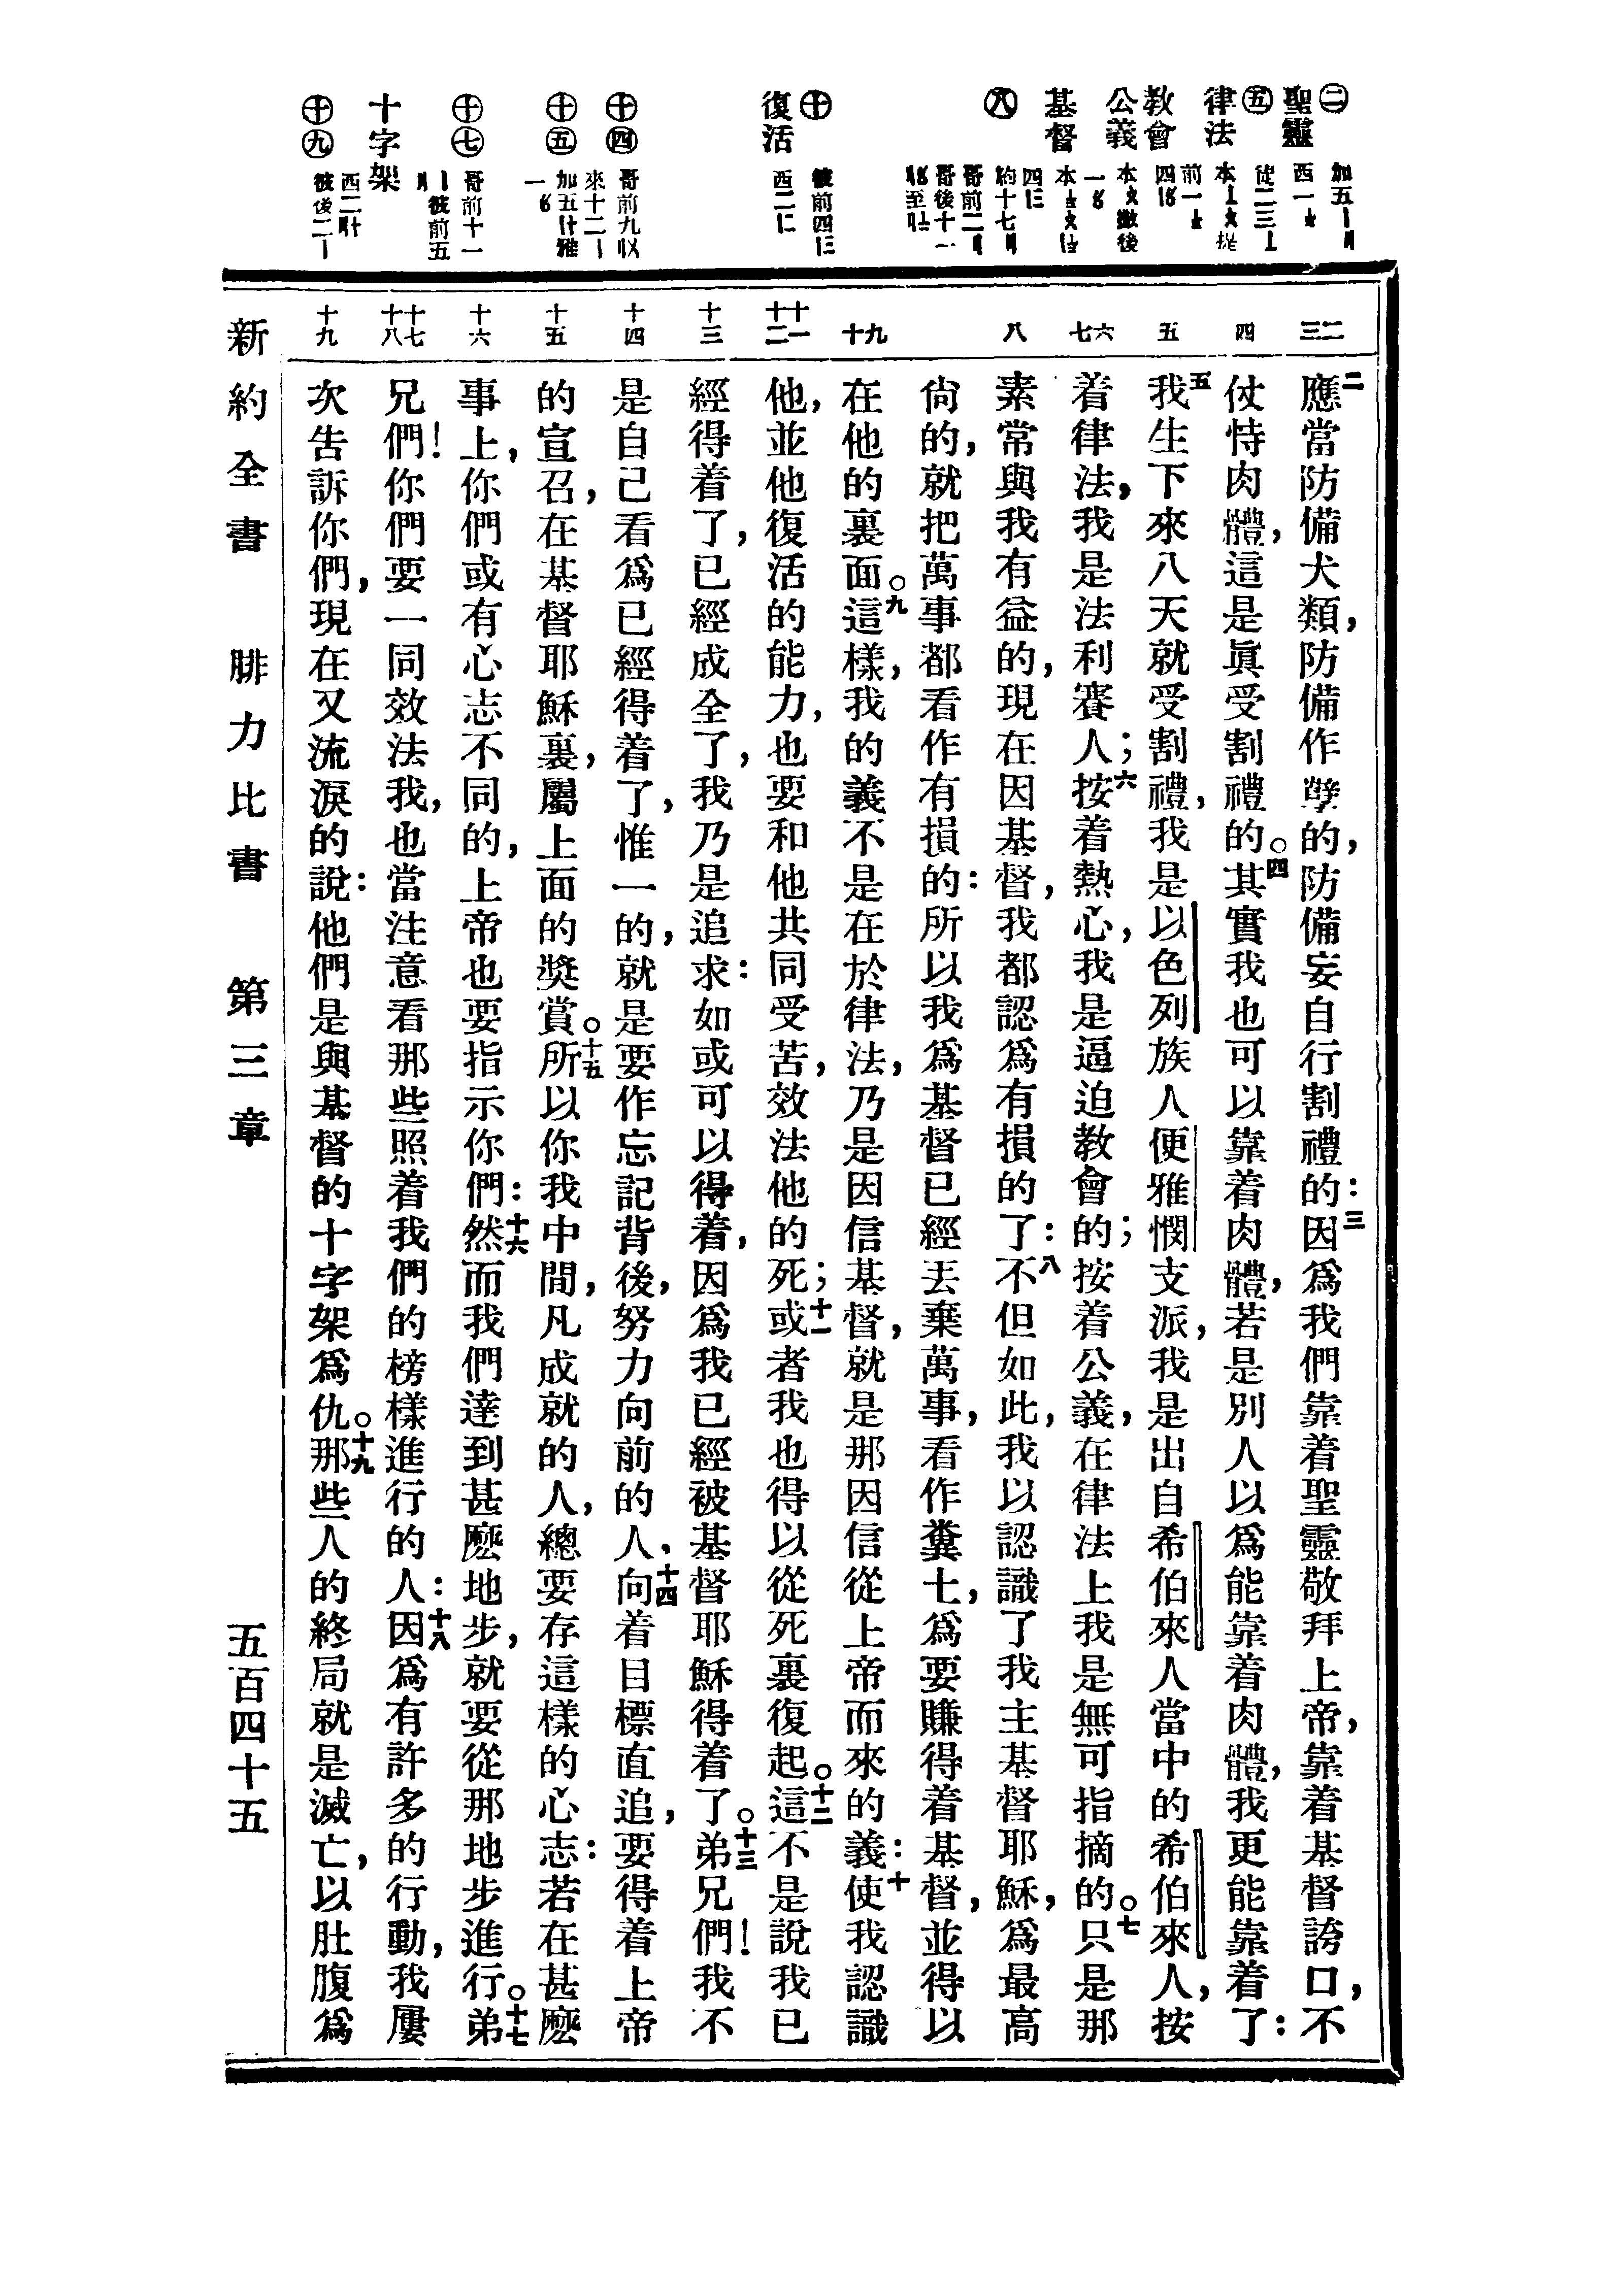 ㊁
聖靈
西一
㊄
徒二三
律法
教會
公義
基督
㊇
約十七
哥前二
哥後十一
㊉
彼前四
復活
西二
十四
哥前九
來十二
十五
加五
雅一
十七
哥前十一
彼前五
十字架
西二
十九
彼後二
二 三
四
五
六 七
八
九 十
十一 十二
十三
十四
十五
十六
十七 十八
十九
二應當防備犬類,防備作孽的,防備妄自行割禮的:三因爲我們靠着聖靈敬拜上帝,靠着基督誇口,不
仗恃肉體,這是眞受割禮的。四其實我也可以靠着肉體,若是別人以爲能靠着肉體,我更能靠着了:
五我生下來八天就受割禮,我是以色列族人便雅憫支派,我是出自希伯來人當中的希伯來人,按
着律法,我是法利賽人;六按着熱心,我是逼迫教會的;按着公義,在律法上我是無可指摘的。七只是那
素常與我有益的,現在因基督,我都認爲有損的了:八不但如此,我以認識了我主基督耶穌,爲最高
尙的,就把萬事都看作有損的:所以我爲基督已經丟棄萬事,看作糞土,爲要賺得着基督,並得以
在他的裏面。九這樣,我的義不是在於律法,乃是因信基督,就是那因信從上帝而來的義:十使我認識
他,並他復活的能力,也要和他共同受苦,效法他的死;十一或者我也得以從死裏復起。十二這不是說我已
經得着了,已經成全了,我乃是追求:如或可以得着,因爲我已經被基督耶穌得着了。十三弟兄們!我不
是自己看爲已經得着了,惟一的,就是要作忘記背後,努力向前的人,十四向着目標直追,要得着上帝
的宣召,在基督耶穌裏,屬上面的獎賞。十五所以你我中間,凡成就的人,總要存這樣的心志:若在甚麽
事上,你們或有心志不同的,上帝也要指示你們:十六然而我們達到甚麽地步,就要從那地步進行。十七弟
兄們!你們要一同效法我,也當注意看那些照着我們的榜樣進行的人:十八因爲有許多的行動,我屢
次告訴你們,現在又流淚的說:他們是與基督的十字架爲仇。十九那些人的終局就是滅亡,以肚腹爲
新約全書 腓力比書 第三章 五百四十五